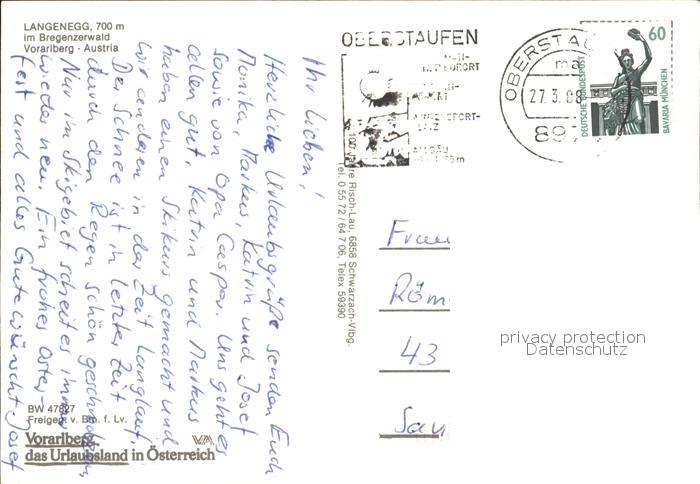 LANGENEGG, 700 m
im Bregenzerwald
Vorarlberg - Austria
Ihr Lieben!
Herzliche Urlaubsgrüße senden Euch
Monika, Markus, Katrin und Josef
sowie von Opa Caspar. Uns geht es
allen gut. Katrin und Markus
haben einen Skikurs gemacht und
wir anderen in der Zeit Langlauf.
Der Schnee ist in letzter Zeit
durch den Regen schön geschmolzen,
Nur im Skigebiet schneit es immer
wieder neu. Ein frohes Oster-
fest und alles Gute wünscht Josef
BW 47827
Freigeg. v. Bm. f. Lv.
Vorarlberg,
das Urlaubsland in Österreich
Risch-Lau, 6858 Schwarzach-Vlbg.
Tel. 0 55 72 / 64 7 06, Telex 59390
OBERSTAUFEN
OBERSTAU
27.3.88
897
60
DEUTSCHE BUNDESPOST
BAVARIA MÜNCHEN
Frau
Röm
43
Sau
privacy protection
Datenschutz